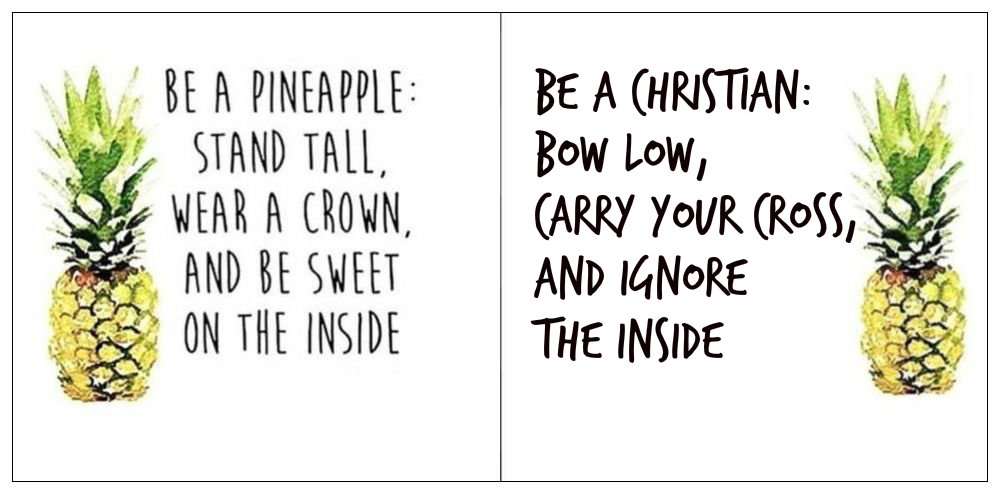 BE A PINEAPPLE:
STAND TALL,
WEAR A CROWN,
AND BE SWEET
ON THE INSIDE
BE A CHRISTIAN:
BOW LOW,
CARRY YOUR CROSS,
AND IGNORE
THE INSIDE